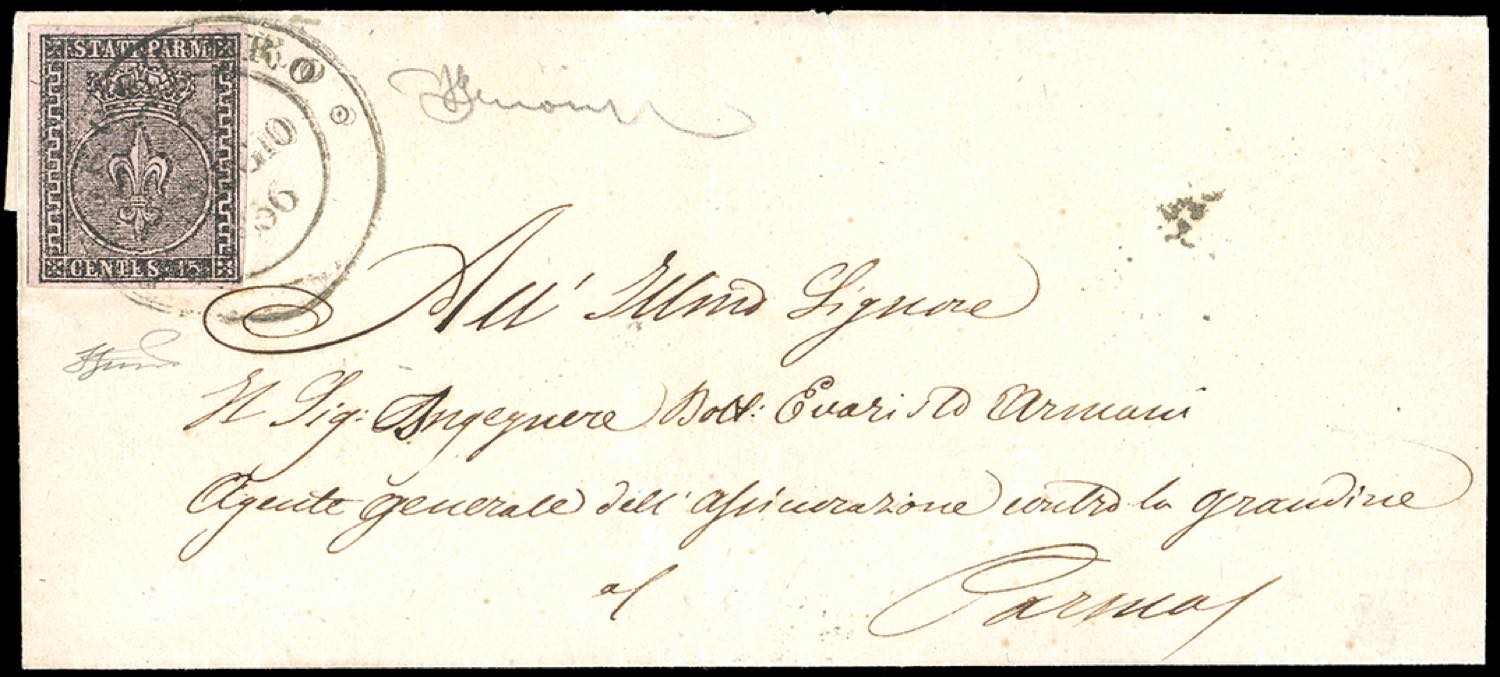 STATI PARM
CENTES. 15
GIO
56
All' Illmo Signore
Il Sig: Ingegnere Dott: Evaristo Armani
Agente generale dell' assicurazione contro la grandine
Parma